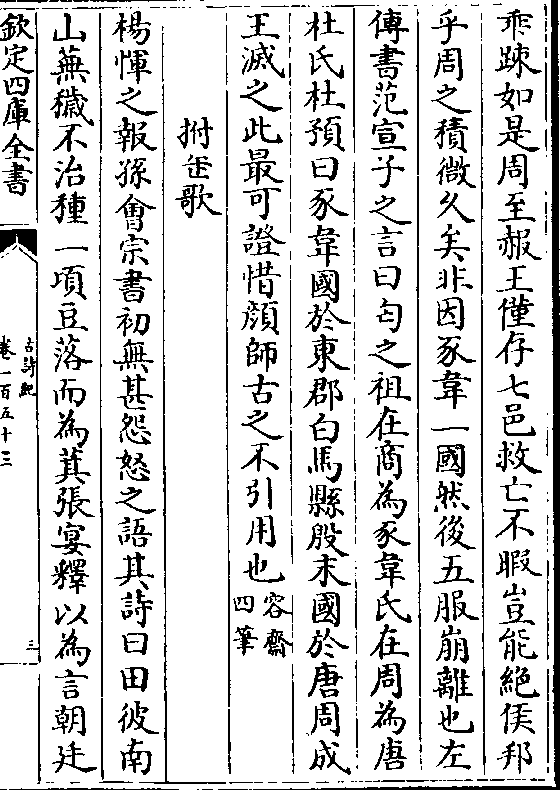 乖踈如是周至赧王僅存七邑救亡不暇豈能絶侯邦
乎周之積微久矣非因豕韋一國然後五服崩離也左
傳書范宣子之言曰匄之祖在商為豕韋氏在周為唐
杜氏杜預曰豕韋國於東郡白馬縣殷末國於唐周成
王滅之此最可證惜顔師古之不引用也容齋四筆
拊缶歌
楊惲之報孫會宗書初無甚怨怒之語其詩曰田彼南
山蕪穢不治種一頃豆落而為萁張宴釋以為言朝廷
欽定四庫全書
古詩紀
卷一百五十三
三